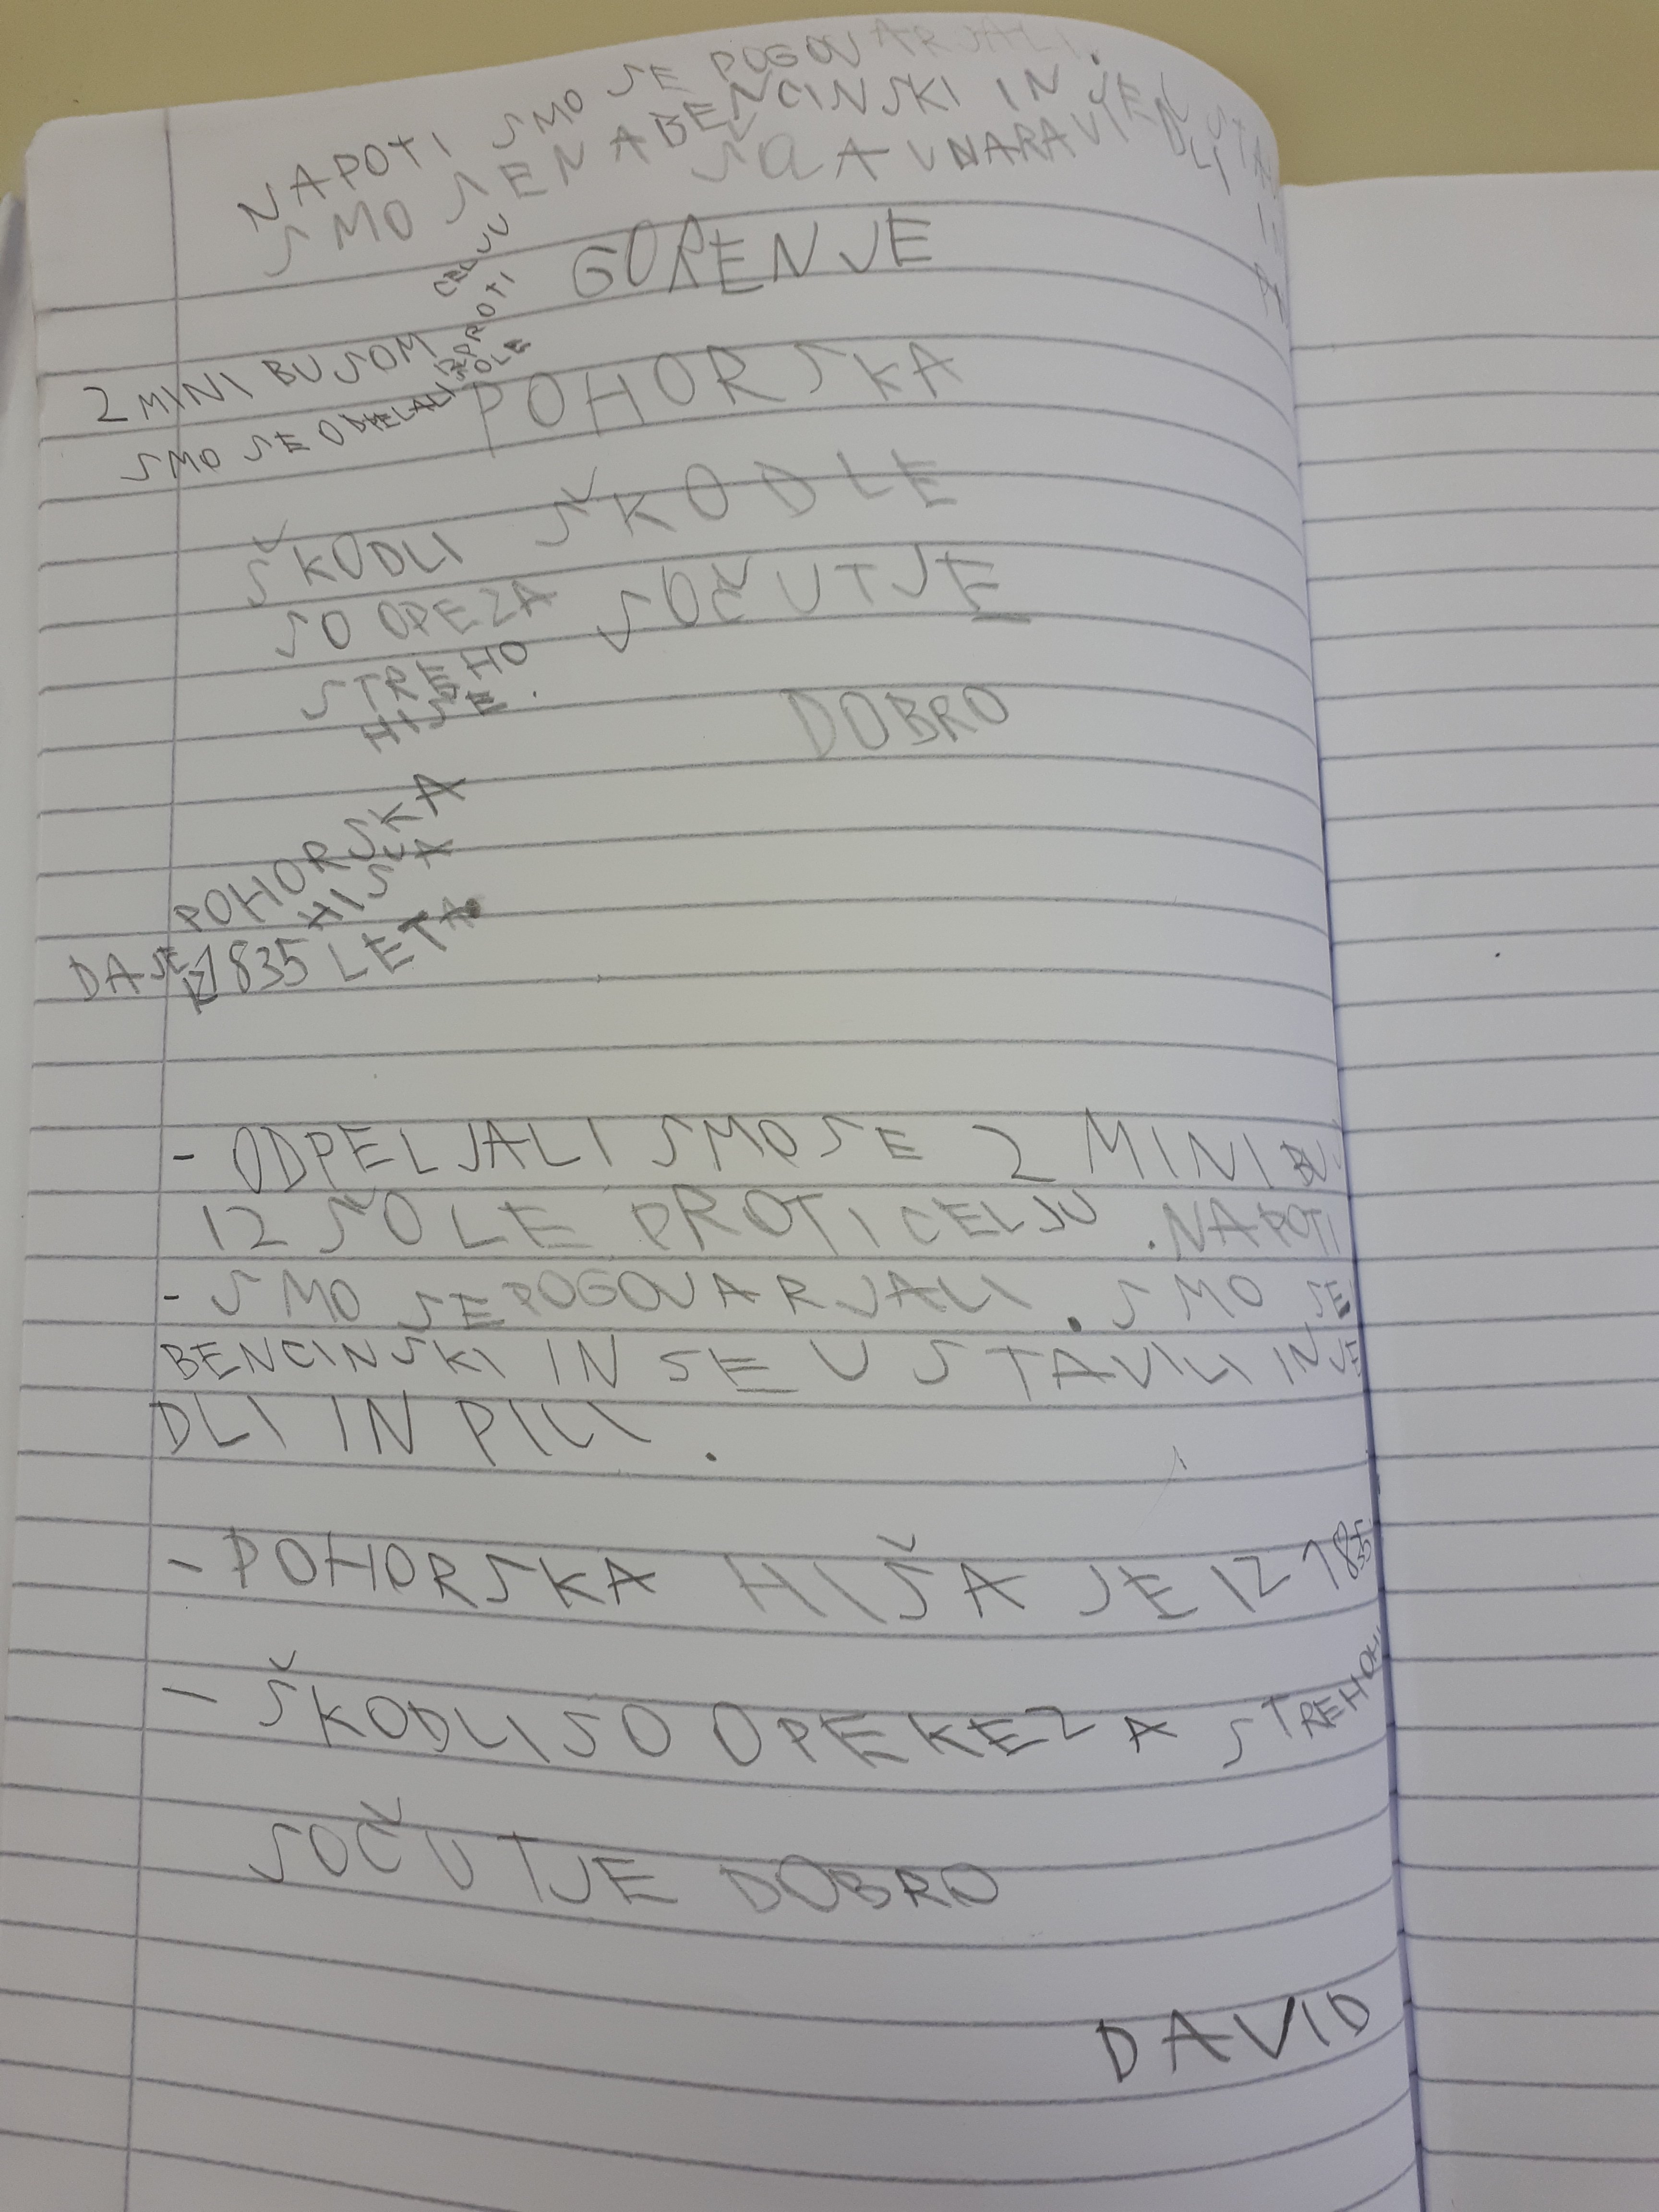 NAPOTI SMO SE POGOVARJALI.
SMO SE NA BENCINSKI IN
ŠOLA V NARAVI
GORENJE
CELJU
2 MINI BUSOM PROTI
SMO SE ODPELALI IZ ŠOLE
POHORSKA
ŠKODLI ŠKODLE
SO OPEZA SOČUTJE
STREHO
HIŠE.
DOBRO
POHORSKA
HIŠA
DA JE IZ 1835 LETA.
- ODPELJALI SMO SE 2 MINI BU
IZ ŠOLE PROTI CELJU. NAPOTI
- SMO SE POGOVARJALI. SMO SE
BENCINSKI IN SE USTAVILI IN JE
DLI IN PILI.
- POHORSKA HIŠA JE IZ 1835
- ŠKODLI SO OPEKE ZA STREHO
SOČUTJE DOBRO
DAVID